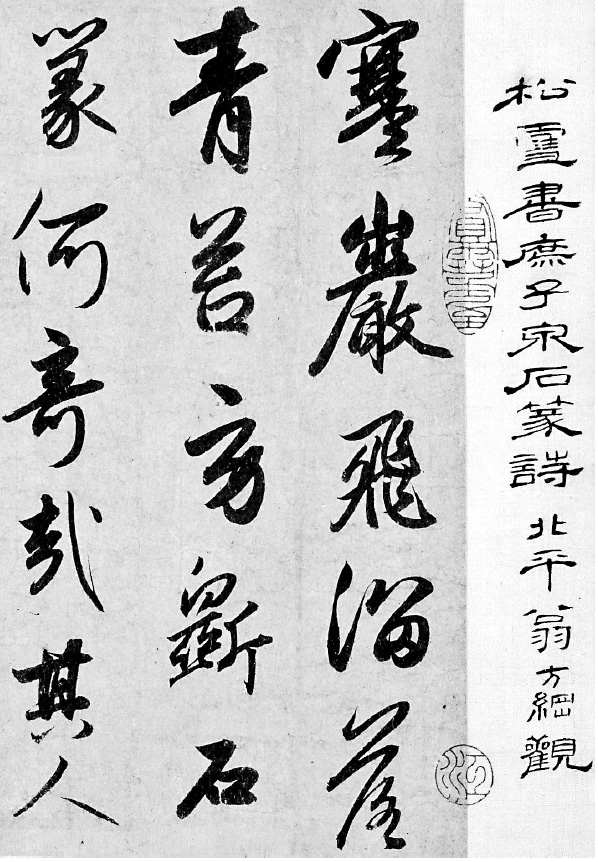 松雪書庶子泉石篆詩 北平翁方綱觀
寒巖飛溜落
青苔旁斲石
篆何奇哉其人